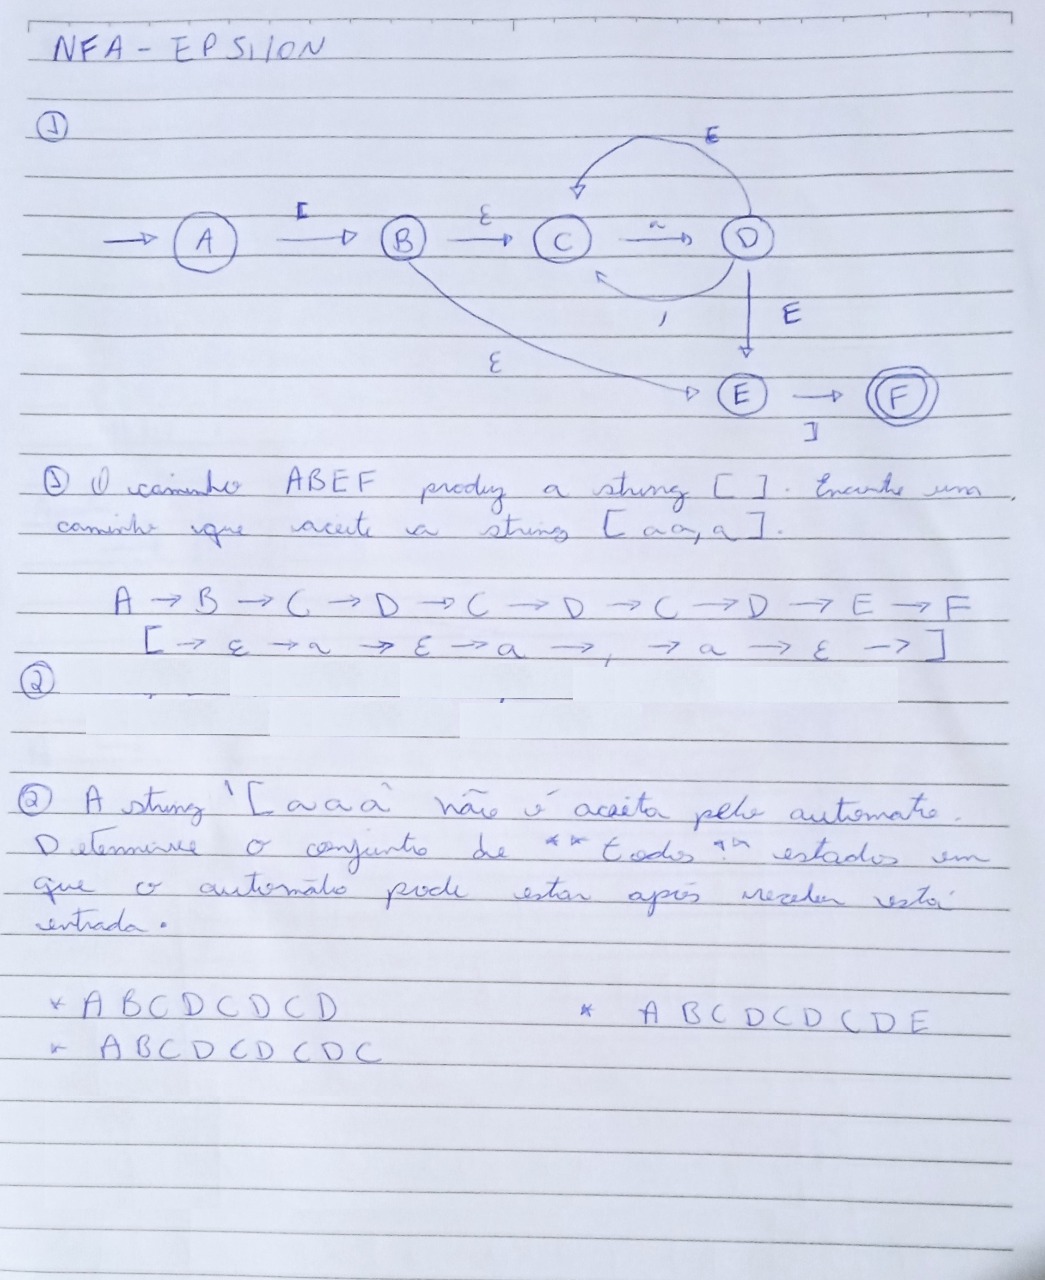 NFA - EPSILON
①
E
[ ε a
A B C D
, E
ε
E F
]
① O caminho ABEF produz a string [ ]. Encontre um
caminho que aceite a string [aa,a].
A → B → C → D → C → D → C → D → E → F
[ → ε → a → ε → a → , → a → ε → ]
②
② A string '[aaa' não é aceita pelo automato.
Determine o conjunto de **todos** estados em
que o automáto pode estar após receber esta
entrada.
* ABCDCDCD * ABCDCDCDE
* ABCDCDCDC